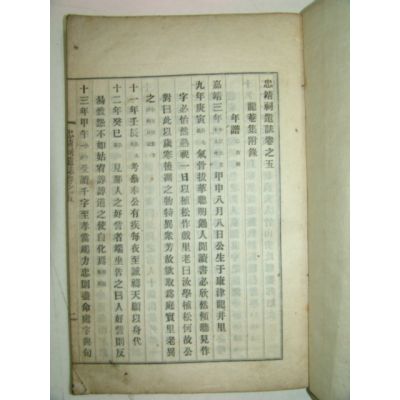 忠靖祠遺誌卷之五
龍菴集附錄
年譜
嘉靖三年甲申八月八日公生于康津龍井里
九年庚寅氣骨拔華聰明過人聞讀書必欣然傾聽見作
字必怡然熟視一日以植松作戲里老曰汝學植松何故公
對曰此以歲寒後凋之物特異衆芳故欲取爲庭實里老異
之
十一年壬辰考參奉公有疾每夜至誠禱天願以身代
十二年癸巳見鄰人之好訾者端坐告之曰人好訾則反
易訾怨不如姑宥諄諄使之自化焉
十三年甲午受讀千字至孝當竭力忠則盡命處字與句